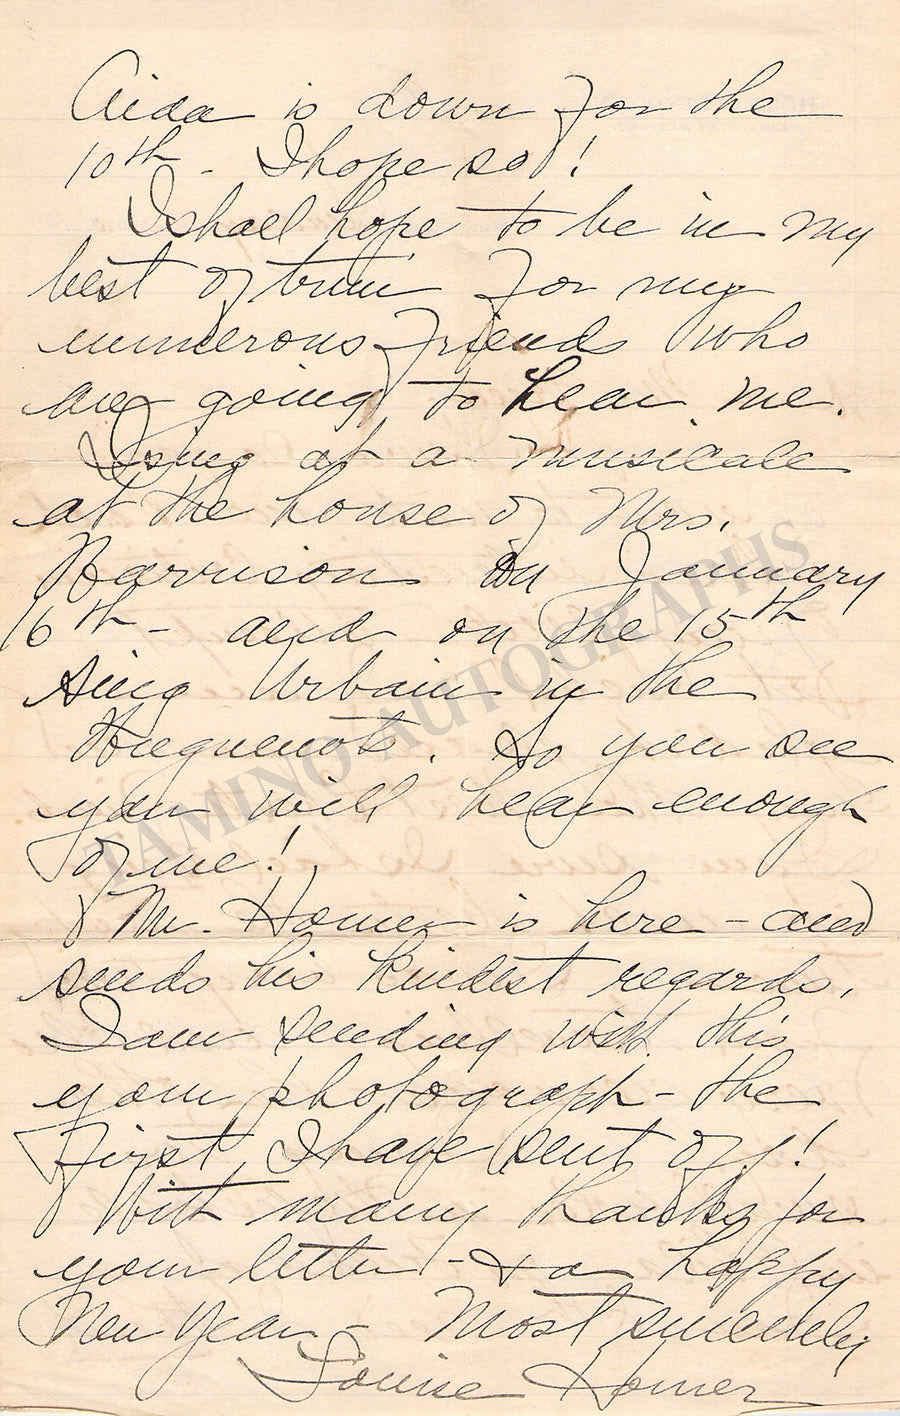 Aida is down for the
10th - I hope so!
I shall hope to be in my
best of trim for my
numerous friends who
are going to hear me.
I sing at a musicale
at the house of Mrs.
Harrison on January
6th - and on the 15th
sing Urbain in the
Huguenots. So you see
you will hear enough
of me!
Mr. Homer is here - and
sends his kindest regards.
I am sending with this
your photograph - the
first I have sent off!
With many thanks for
your letter - & a happy
New Year - Most sincerely
Louise Homer
TAMINO AUTOGRAPHS